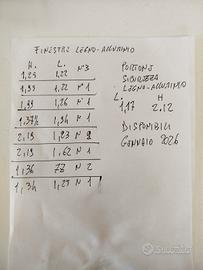 FINESTRE LEGNO-ALLUMINIO
H. L.
1,25 1,22 N°3
1,33 1,22 N 1
1,39 1,26 N 1
1,37½ 1,34 N 1
2,19 1,23 N 2
2,19 1,62 N 1
1,36 77 N 2
1,34 1,27 N 1
PORTONE
SICUREZZA
LEGNO-ALLUMINIO
L. H
1,17 2.12
DISPONIBILI
GENNAIO 2026
Subito.it